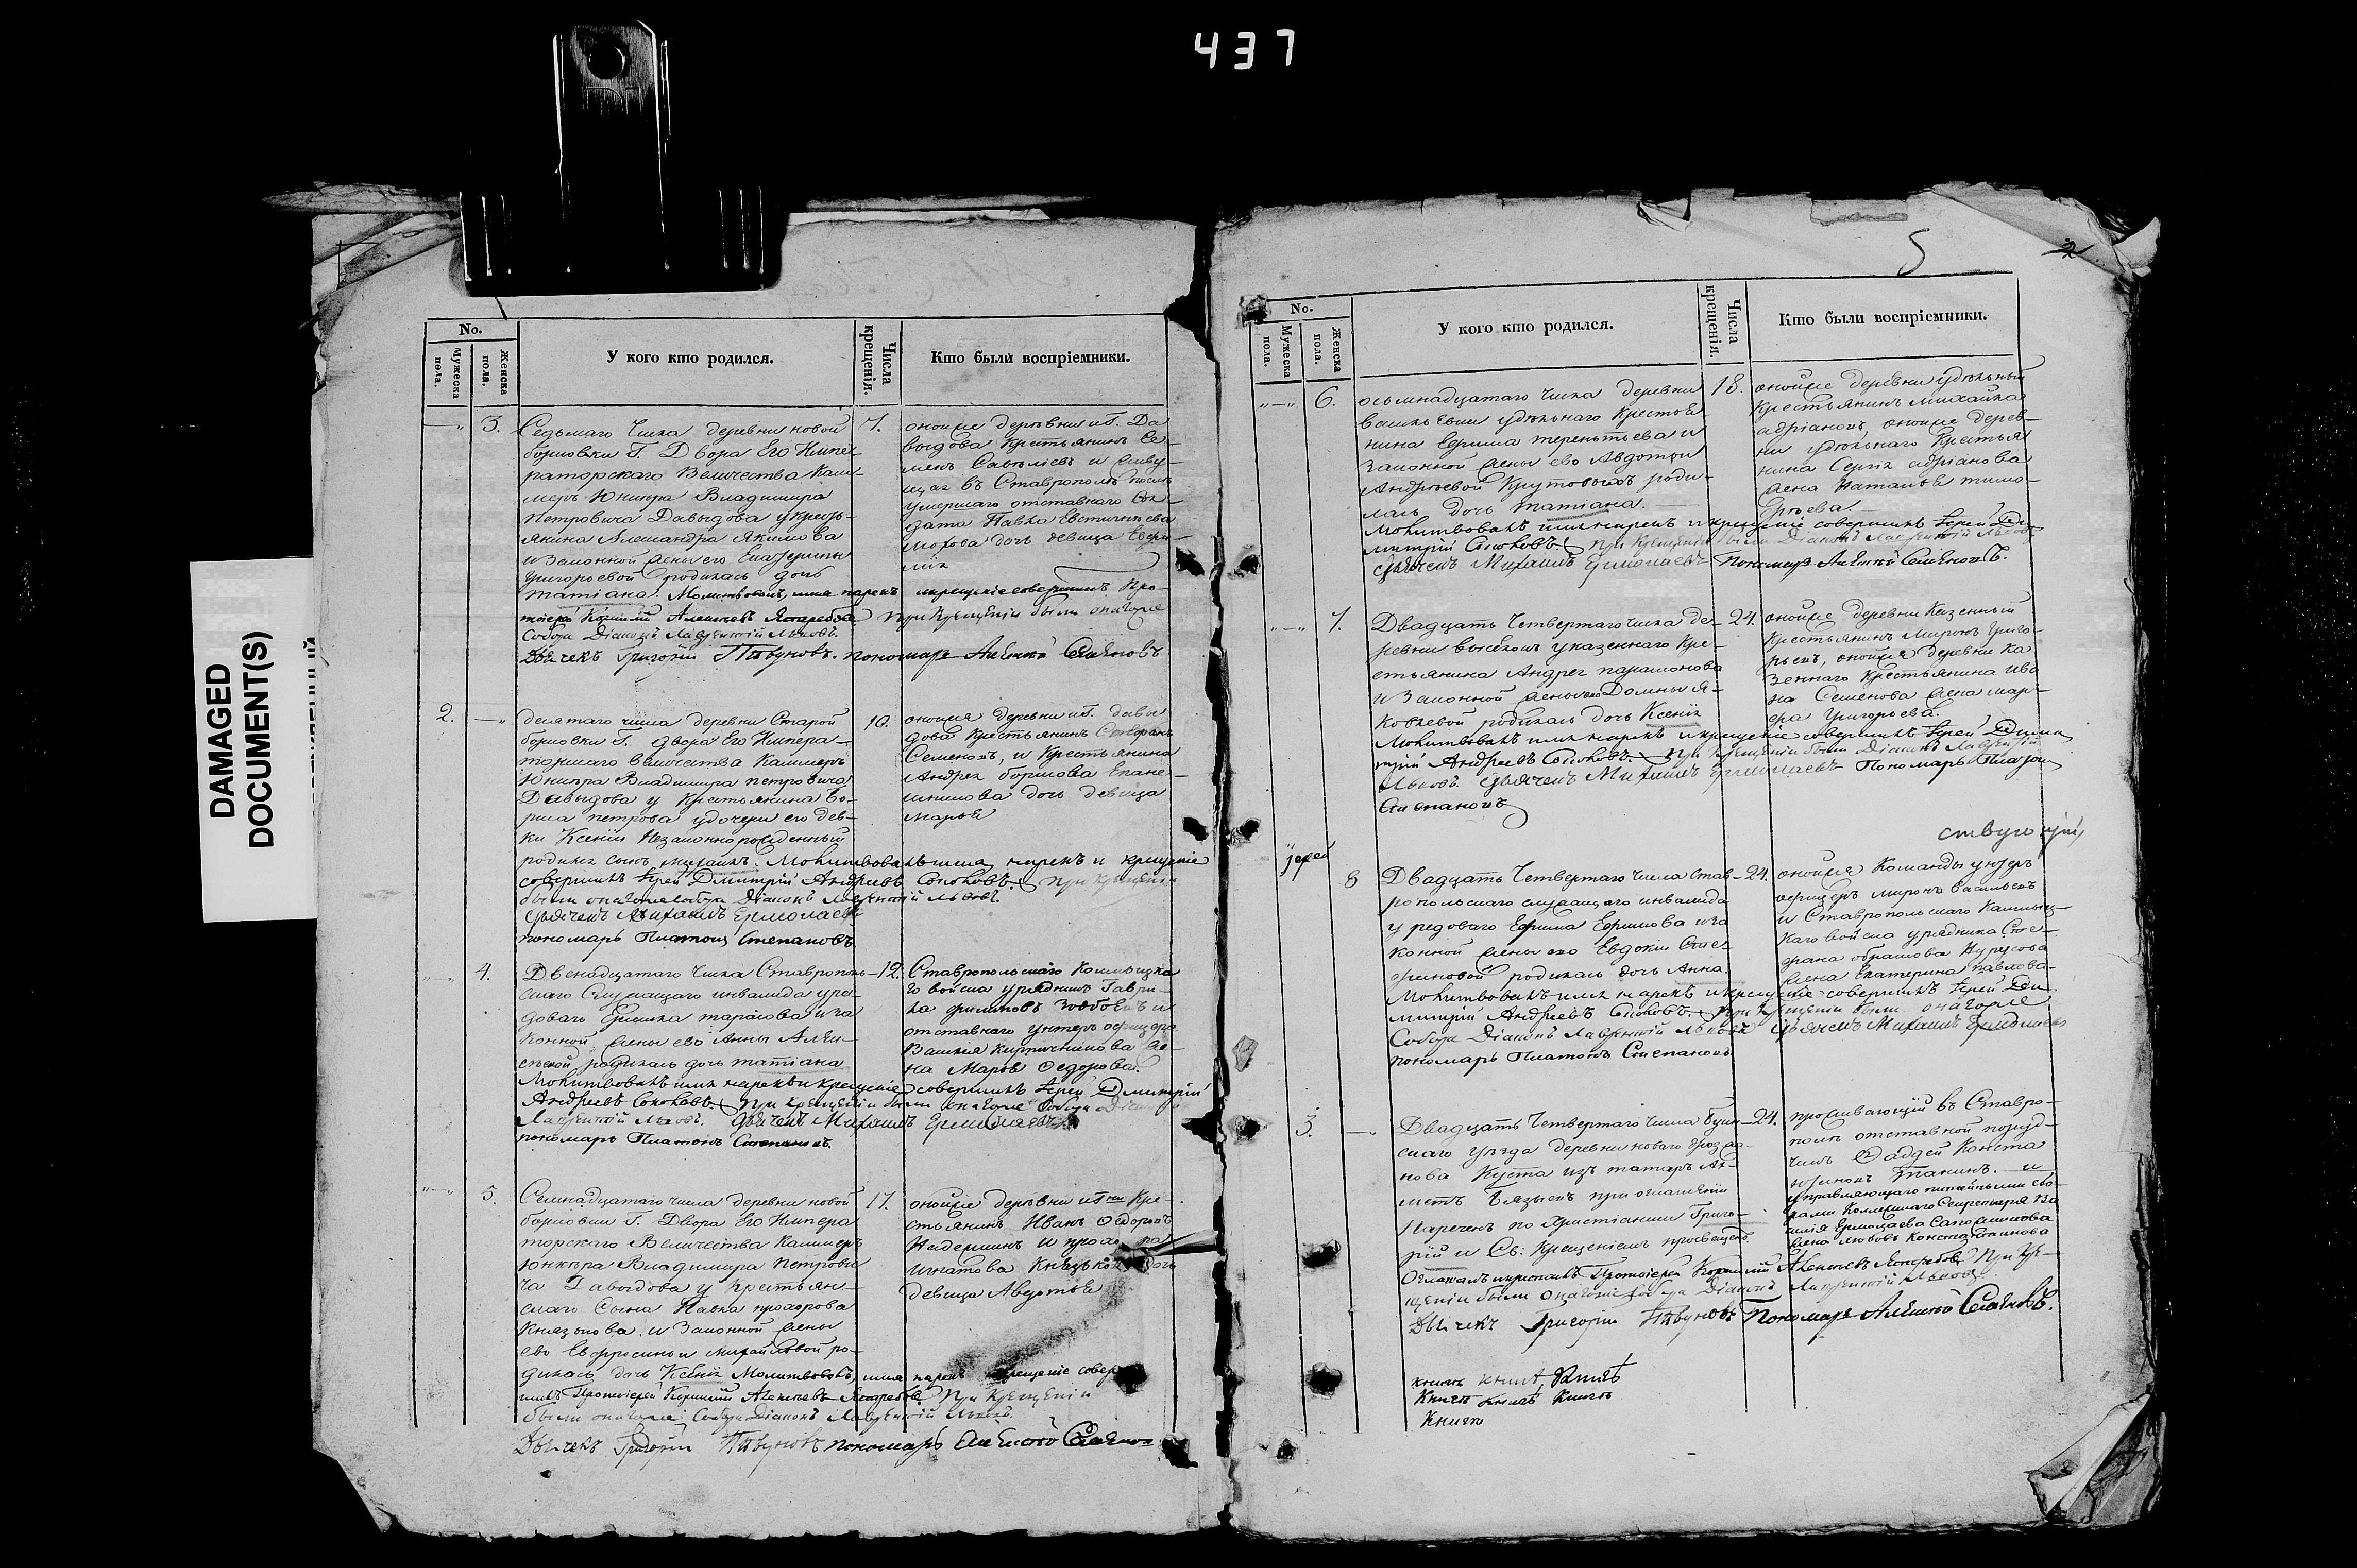 437
DAMAGED
DOCUMENT(S)
No.
Мужеска пола.
Женска пола.
У кого кто родился.
Числа крещенія.
Кто были воспріемники.
3.
Седьмаго числа деревни новой
борковки Г. Двора Его Импе
раторскаго Величества Кам
меръ Юнкера Владимира
Петровича Давыдова у кресть
янина Александра Якимова
и законной жены его Екатерины
Григорьевой родилась дочь
татіана. Молитвовалъ, имя нарекъ и крещеніе совершилъ Про
тоіерей Алексѣевъ Ястребовъ При Крещеніи были онагоже
Собора Діаконъ Лаврентій Львовъ.
Дьячекъ Григорій пономарь Алексѣй Семеновъ
7.
оноиже деревни и Г. Да
выдова Крестьянинъ Се
менъ Савельевъ и
въ Ставрополѣ послѣ
умершаго отставнаго Сол
дата Павла
дочь девица
2.
десятаго числа деревни Старой
борковки Г. двора Его Импера
торскаго величества Каммеръ
Юнкера Владимира петровича
Давыдова у крестьянина Бо
риса петрова у дочери его дев
ки Ксеніи Незаконнорожденный
родился сынъ михаилъ. Молитвовалъ имя нарекъ и крещеніе
совершилъ Іерей Дмитрій Андреевъ Соколовъ. При крещеніи
были онагоже собора Діаконъ Лаврентій Львовъ.
Дьячекъ Михаилъ Ермолаевъ
пономарь Платонъ Степановъ
10.
оноиже деревни и Г. давы
дова Крестьянинъ
Семеновъ, и Крестьянина
Андрея борисова
дочь девица
марья
4.
Двенадцатаго числа Ставрополь
скаго Служащаго инвалида у ря
доваго тарасова и за
конной жены его Анны Алек
сѣевой родилась дочь татіана
Молитвовалъ имя нарекъ и крещеніе совершилъ Іерей Дмитрій
Андреевъ Соколовъ. При крещеніи были онагоже Собора Діаконъ
Лаврентій Львовъ. Дьячекъ Михаилъ Ермолаевъ
пономарь Платонъ Степановъ.
12.
Ставропольскаго Колмыцка
го войска урядникъ Гаври
ла филиповъ и
отставнаго унтеръ офицера
Василія Кирпичникова же
на Марфа Федорова.
5.
Семнадцатаго числа деревни новой
борковки Г. Двора Его Импера
торскаго Величества Каммеръ
Юнкера Владимира Петрови
ча Давыдова у крестьян
скаго Сына Павла прохорова
Князькова и Законной жены
его Евфросиньи михайловой ро
дилась дочь Ксенія Молитвовалъ, имя нарекъ и крещеніе совер
шилъ Протоіерей Алексѣевъ Ястребовъ При Крещеніи
были онагоже Собора Діаконъ Лаврентій Львовъ.
Дьячекъ Григорій пономарь Алексѣй Семеновъ
17.
оноиже деревни и Г. Кре
стьянинъ Иванъ Федоровъ
и прохора
игнатова дочь
девица Авдотья
5
2
No.
Мужеска пола.
Женска пола.
У кого кто родился.
Числа крещенія.
Кто были воспріемники.
6.
осьмнадцатаго числа деревни
васильевки удѣльнаго крестья
нина Ефима терентьева и
Законной жены ево Авдотьи
Андреевой Крутовыхъ роди
лась дочь татіана.
Молитвовалъ имя нарекъ и крещеніе совершилъ Іерей Ди
митрій Соколовъ. При Крещеніи были Діаконъ Лаврентій Львовъ
Дьячекъ Михаилъ Ермолаевъ Пономарь Алексѣй Семеновъ.
18.
оноиже деревни удѣльный
Крестьянинъ михайла
адріановъ, оноиже дерев
ни удѣльнаго Крестья
нина Сергія адріанова
жена Наталья тимо
феева.
7.
Двадцать Четвертаго числа де
ревни выселокъ у казеннаго Кре
стьянина Андрея парамонова
и Законной жены ево Домны Я
ковлевой родилась дочь Ксенія
Молитвовалъ имя нарекъ и крещеніе совершилъ Іерей Дими
трій Андреевъ Соколовъ. При крещеніи были Діаконъ Лаврентій
Львовъ. Дьячекъ Михаилъ Ермолаевъ Пономарь Платонъ
Степановъ
24.
оноиже деревни Казенный
Крестьянинъ миронъ Григо
рьевъ, оноиже деревни ка
зеннаго Крестьянина Ива
на Семенова жена мар
фа Григорьева.
ствующій
Іерей
8
Двадцать Четвертаго числа Став
ропольскаго служащаго инвалида
у редоваго Ефима Ефимова и за
конной жены ево Евдокіи Сте
фановой родилась дочь Анна.
Молитвовалъ имя нарекъ и крещеніе совершилъ Іерей Ди
митрій Андреевъ Соколовъ. При крещеніи были онагоже
Собора Діаконъ Лаврентій Львовъ Дьячекъ Михаилъ Ермолаевъ
пономарь Платонъ Степановъ
24.
оноиже Команды унтеръ
офицеръ миронъ Васильевъ
и Ставропольскаго Калмыц
каго войска урядника Сте
фана
жена Екатерина Павлова
3.
Двадцать Четвертаго числа Буин
скаго уѣзда деревни новаго
Куста изъ татаръ Ах
метъ при оглашеніи
Нареченъ по Христіански Григо
рій и Св: Крещеніемъ просвещенъ.
Оглашалъ и крестилъ Протоіерей Алексѣевъ Ястребовъ При Кре
щеніи были онагоже собора Діаконъ Лаврентій Львовъ
Дьячекъ Григорій Пономарь Алексѣй Семеновъ.
24.
проживающій въ Ставро
полѣ отставной поруд
чикъ Фаддей Конста
Тпанинъ. и
управляющаго питейными сбо
рами Коллежскаго Секретаря Ва
силія Ермолаева
жена любовь Константинова
книгъ книга книгъ
Книгъ книгъ Книгъ
Книго